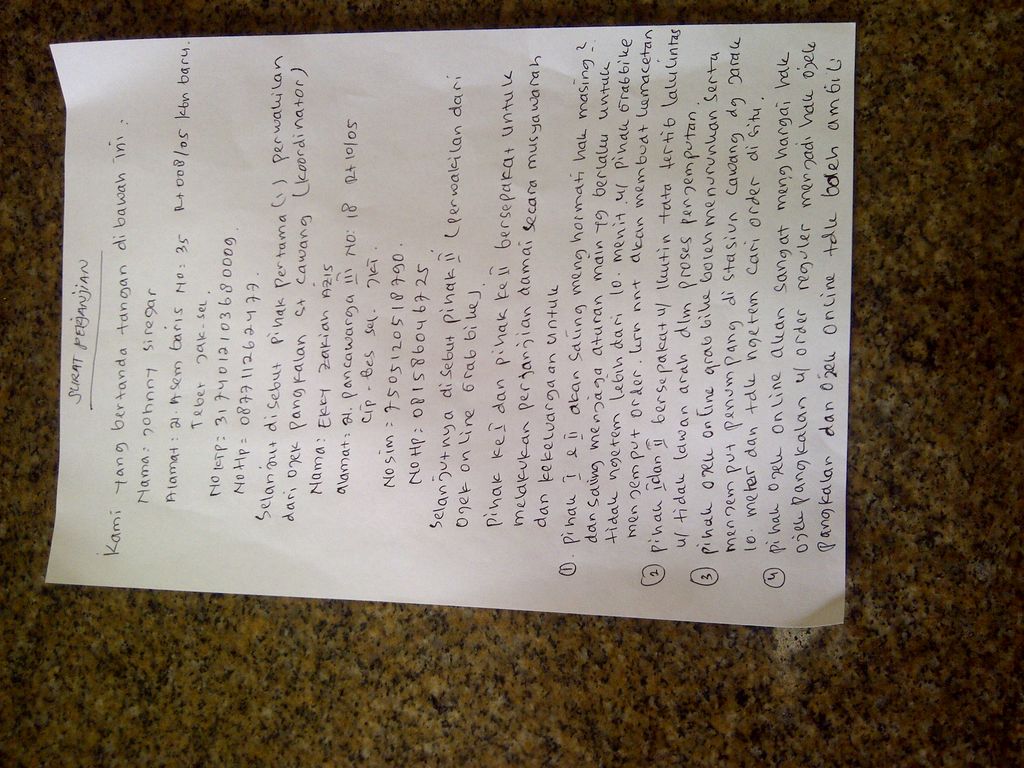 SURAT PERJANJIAN
Kami yang bertanda tangan dibawah ini :
Nama : Johnny siregar
Alamat : Jl. Asem baris No : 35 Rt 008/05 kbn baru.
Tebet Jak-sel.
No KTP : 3174012103680009.
No Hp : 087711262477.
Selanjut disebut pihak pertama (I) perwakilan
dari ojek pangkalan st Cawang (koordinator)
Nama : Ekky Zakian Azis
alamat : Jl. pancawarga III No : 18 Rt 10/05
Cip. Bes sel. Jkt.
No sim : 750511205187 90.
No Hp : 081586046725
Selanjutnya disebut pihak II (perwakilan dari
ojek online Grab bike)
pihak ke I dan pihak ke II bersepakat untuk
melakukan perjanjian damai secara musyawarah
dan kekeluargaan untuk
① pihak I & II akan saling menghormati hak masing2
dan saling menjaga aturan main yg berlaku untuk
tidak ngetem lebih dari 10. menit u/ pihak Grabbike
menjemput order. krn mnt akan membuat kemacetan
② pihak I dan II bersepakat u/ ikutin tata tertib lalulintas
u/ tidak lawan arah dlm proses penjemputan.
③ pihak ojek online grab bike boleh menurunkan serta
menjemput penumpang di stasiun Cawang dg jarak
10. meter dan tdk ngetem cari order di situ.
④ pihak ojek online akan sangat menghargai hak
ojek pangkalan u/ order reguler menjadi hak ojek
pangkalan dan ojek online tdk boleh ambil